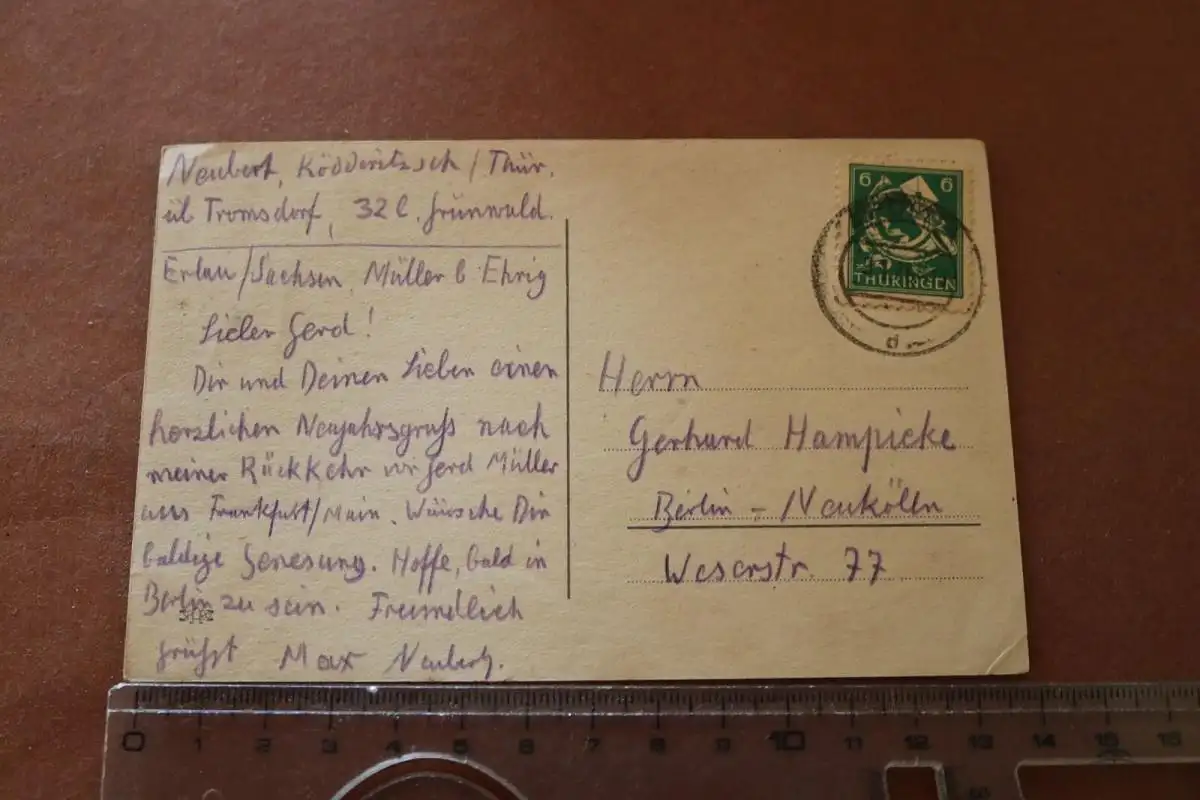 Neubert, Ködderitzsch / Thür.
üb Tromsdorf, 32 b. Grünwald.
Erlau / Sachsen, Müller b Ehrig
Lieber Gerd!
Dir und Deinen Lieben einen
herzlichen Neujahrsgruß nach
meiner Rückkehr Gerd Müller
aus Frankfurt/Main. Wünsche Dir
baldige Genesung. Hoffe, bald in
Berlin zu sein. Freundlich
grüßt Max Neubert.
6 6
THÜRINGEN
d
Herrn
Gerhard Hampicke
Berlin - Neukölln
Weserstr. 77
0 1 2 3 4 5 6 7 8 9 10 11 12 13 14 15 16